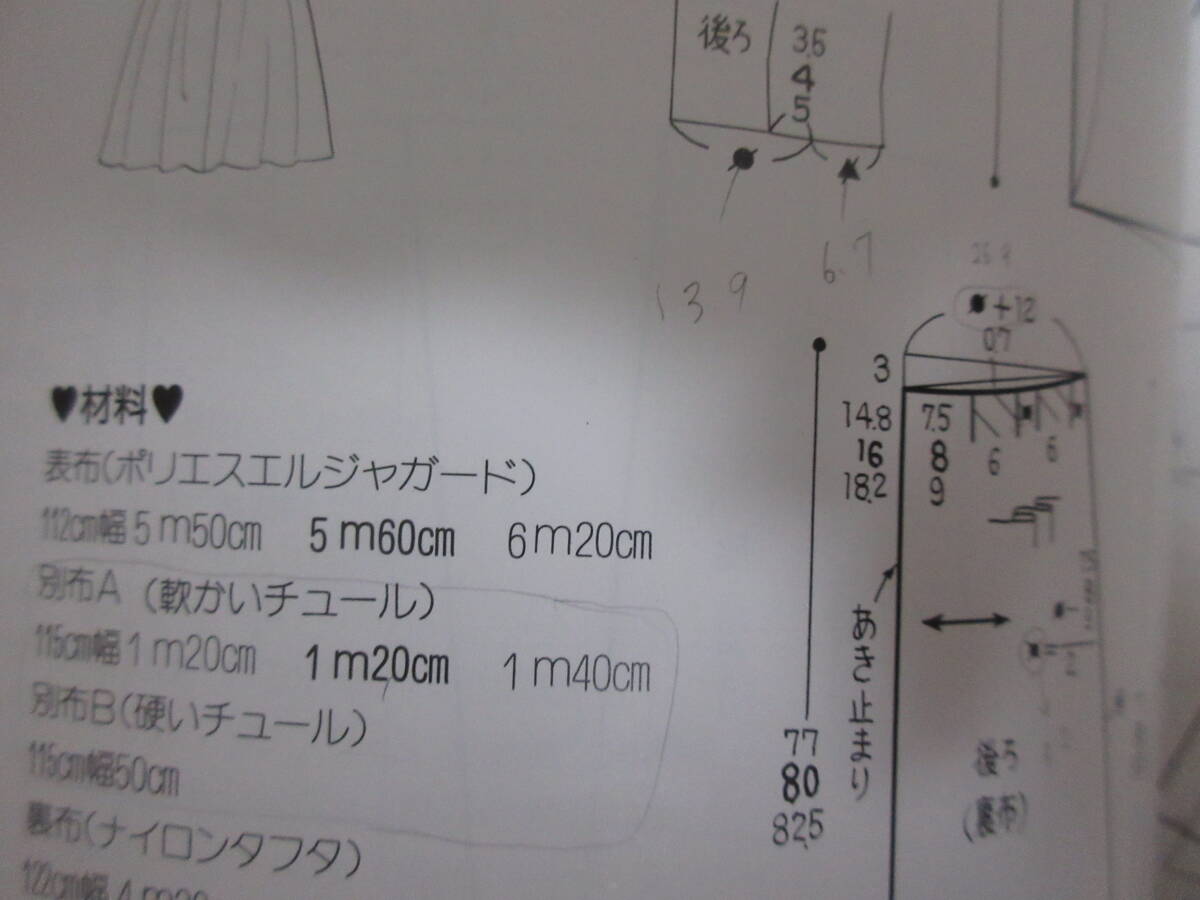 後ろ
3.5
4
5
13 9
6.7
♥材料♥
表布(ポリエスエルジャガード)
112cm幅5m50cm 5m60cm 6m20cm
別布A(軟かいチュール)
115cm幅1m20cm 1m20cm 1m40cm
別布B(硬いチュール)
115cm幅50cm
裏布(ナイロンタフタ)
122cm幅
+12
0.7
3
14.8
16
18.2
7.5
8
9
6
6
あき止まり
77
80
82.5
後ろ
(裏布)